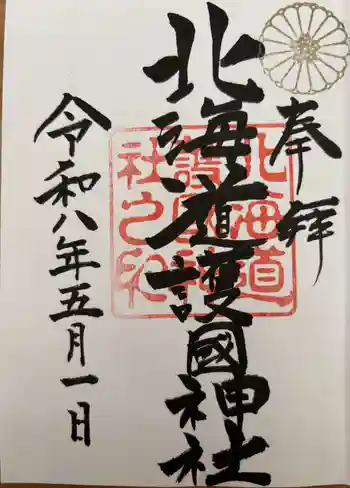 奉拜
北海道護國神社
北海道
護國神
社之印
令和八年五月一日